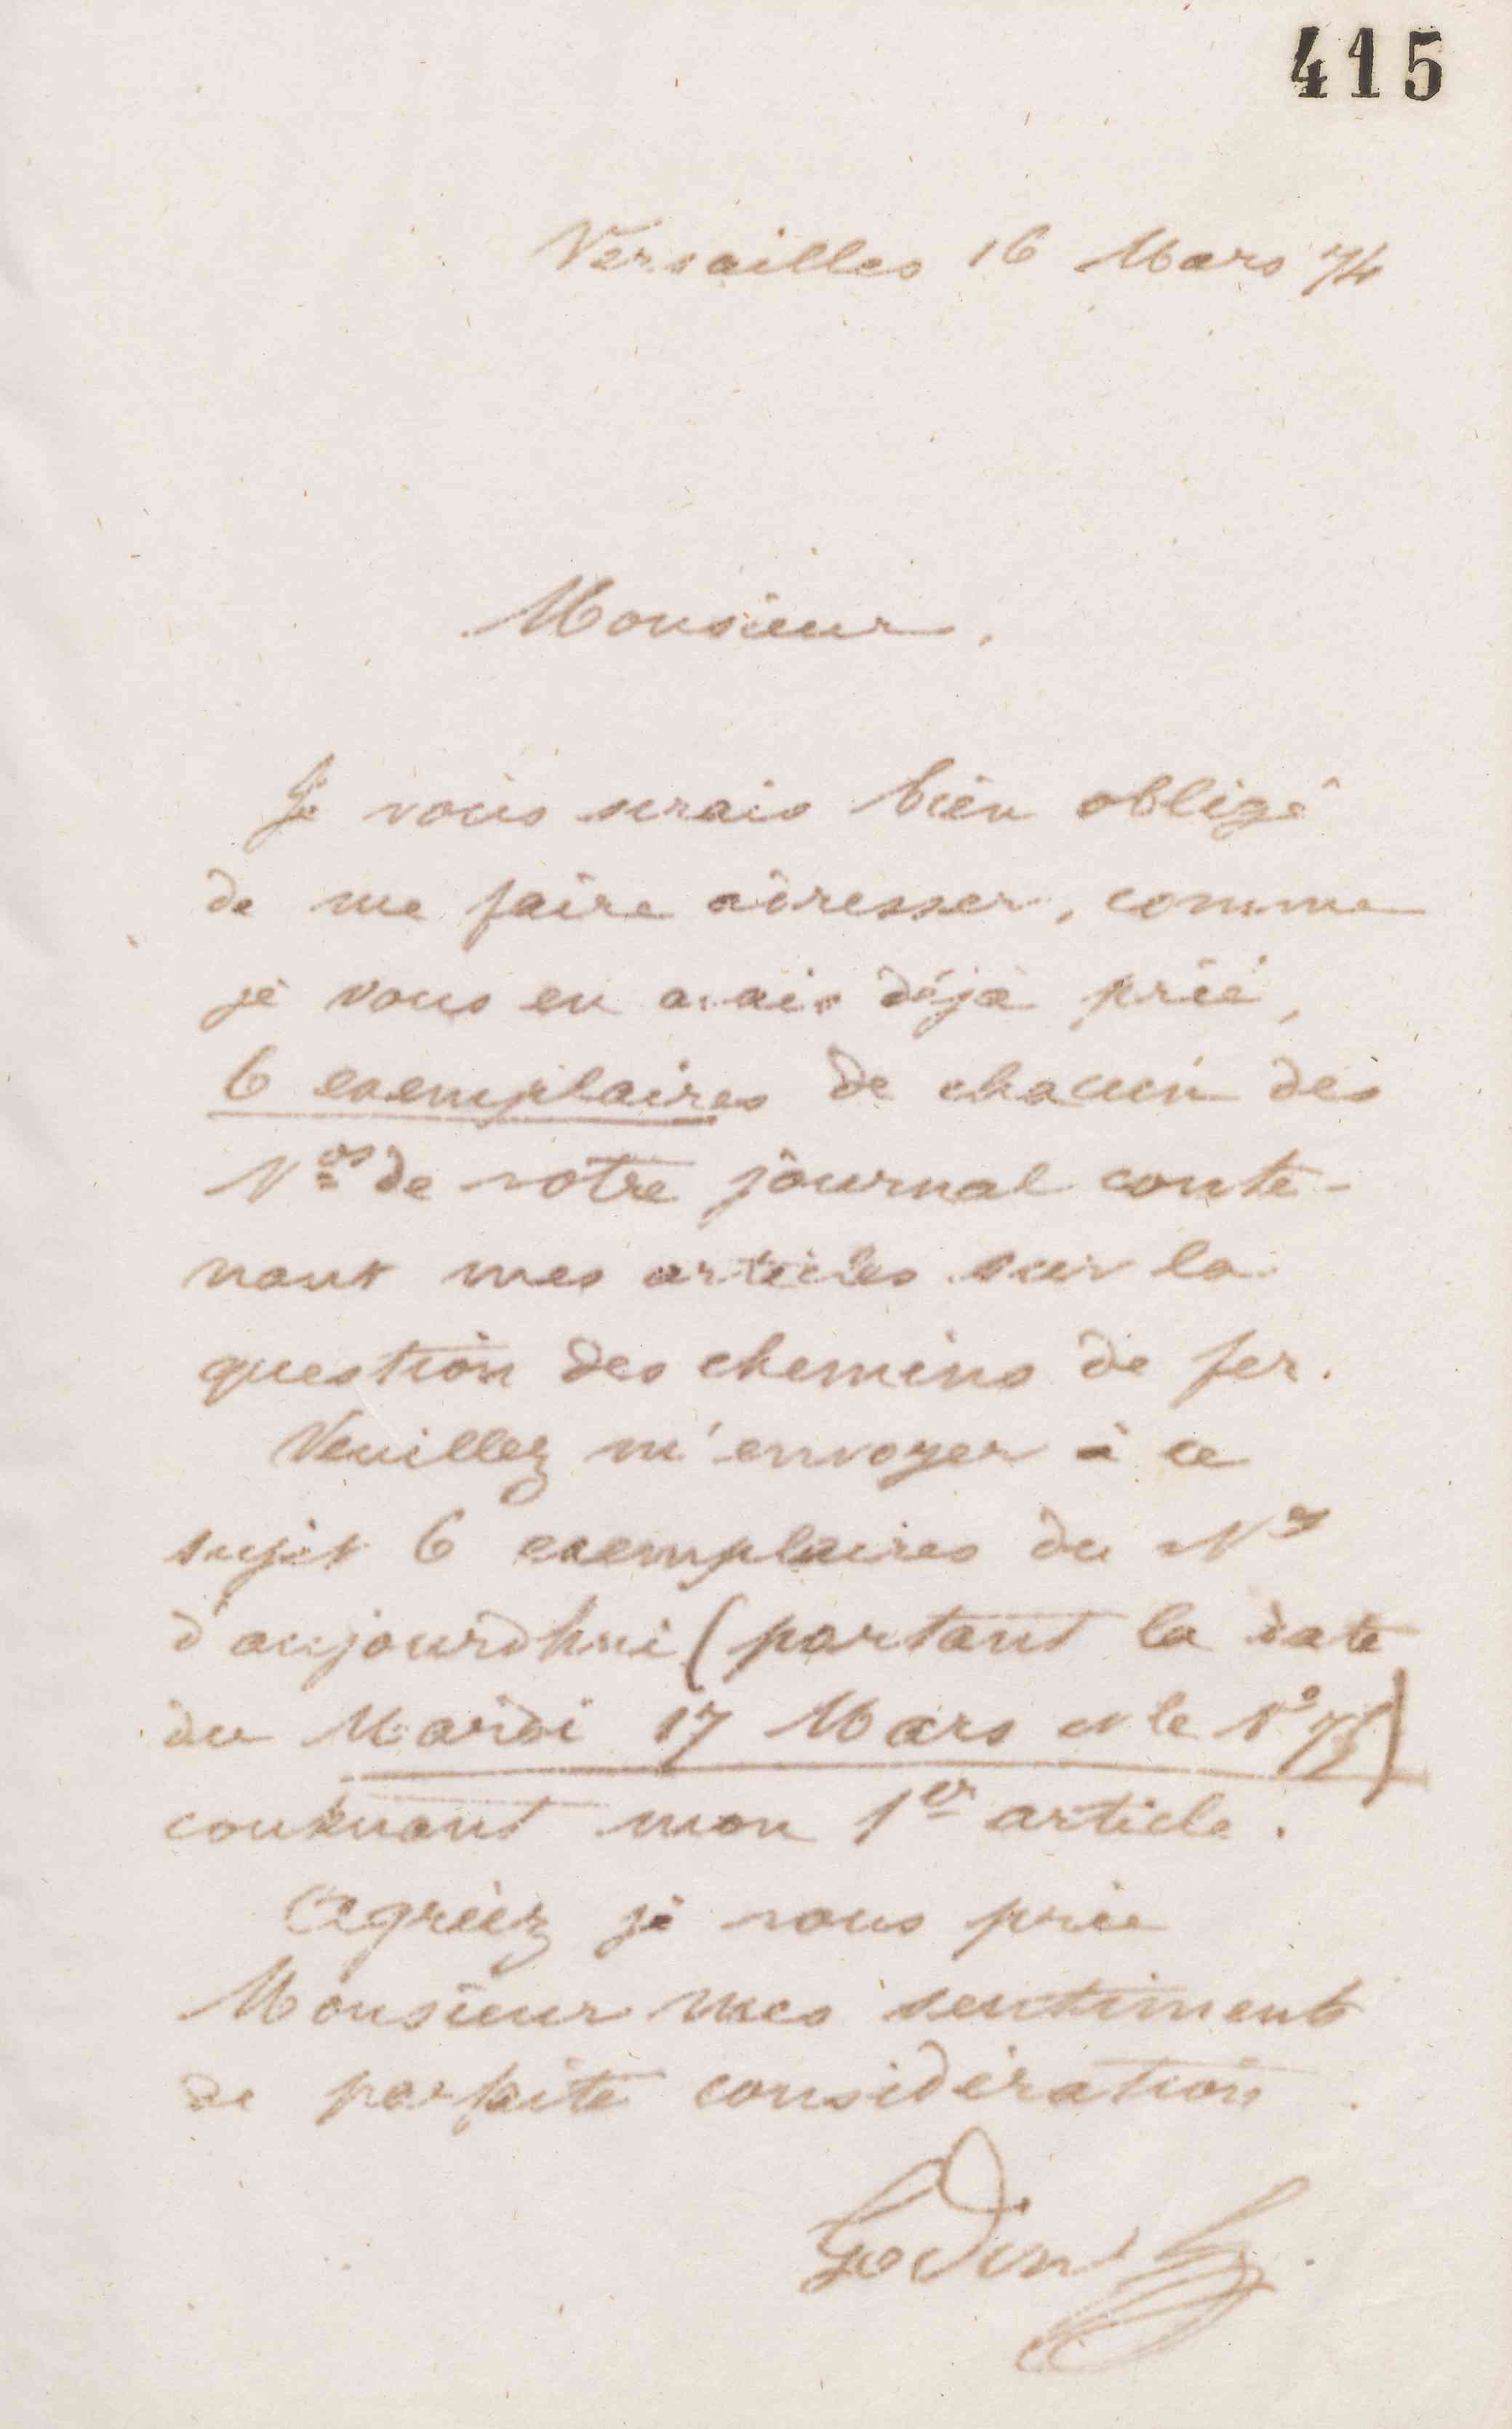 415
Versailles 16 Mars 74
Monsieur,
Je vous serais bien obligé
de me faire adresser, comme
je vous en avais déjà prié,
6 exemplaires de chacun des
Nos de votre journal conte-
nant mes articles sur la
question des chemins de fer.
Veuillez m'envoyer à ce
sujet 6 exemplaires du No
d'aujourdhui (portant la date
du Mardi 17 Mars et le No 75)
contenant mon 1er article.
Agréez je vous prie
Monsieur mes sentiments
de parfaite considération.
Godin